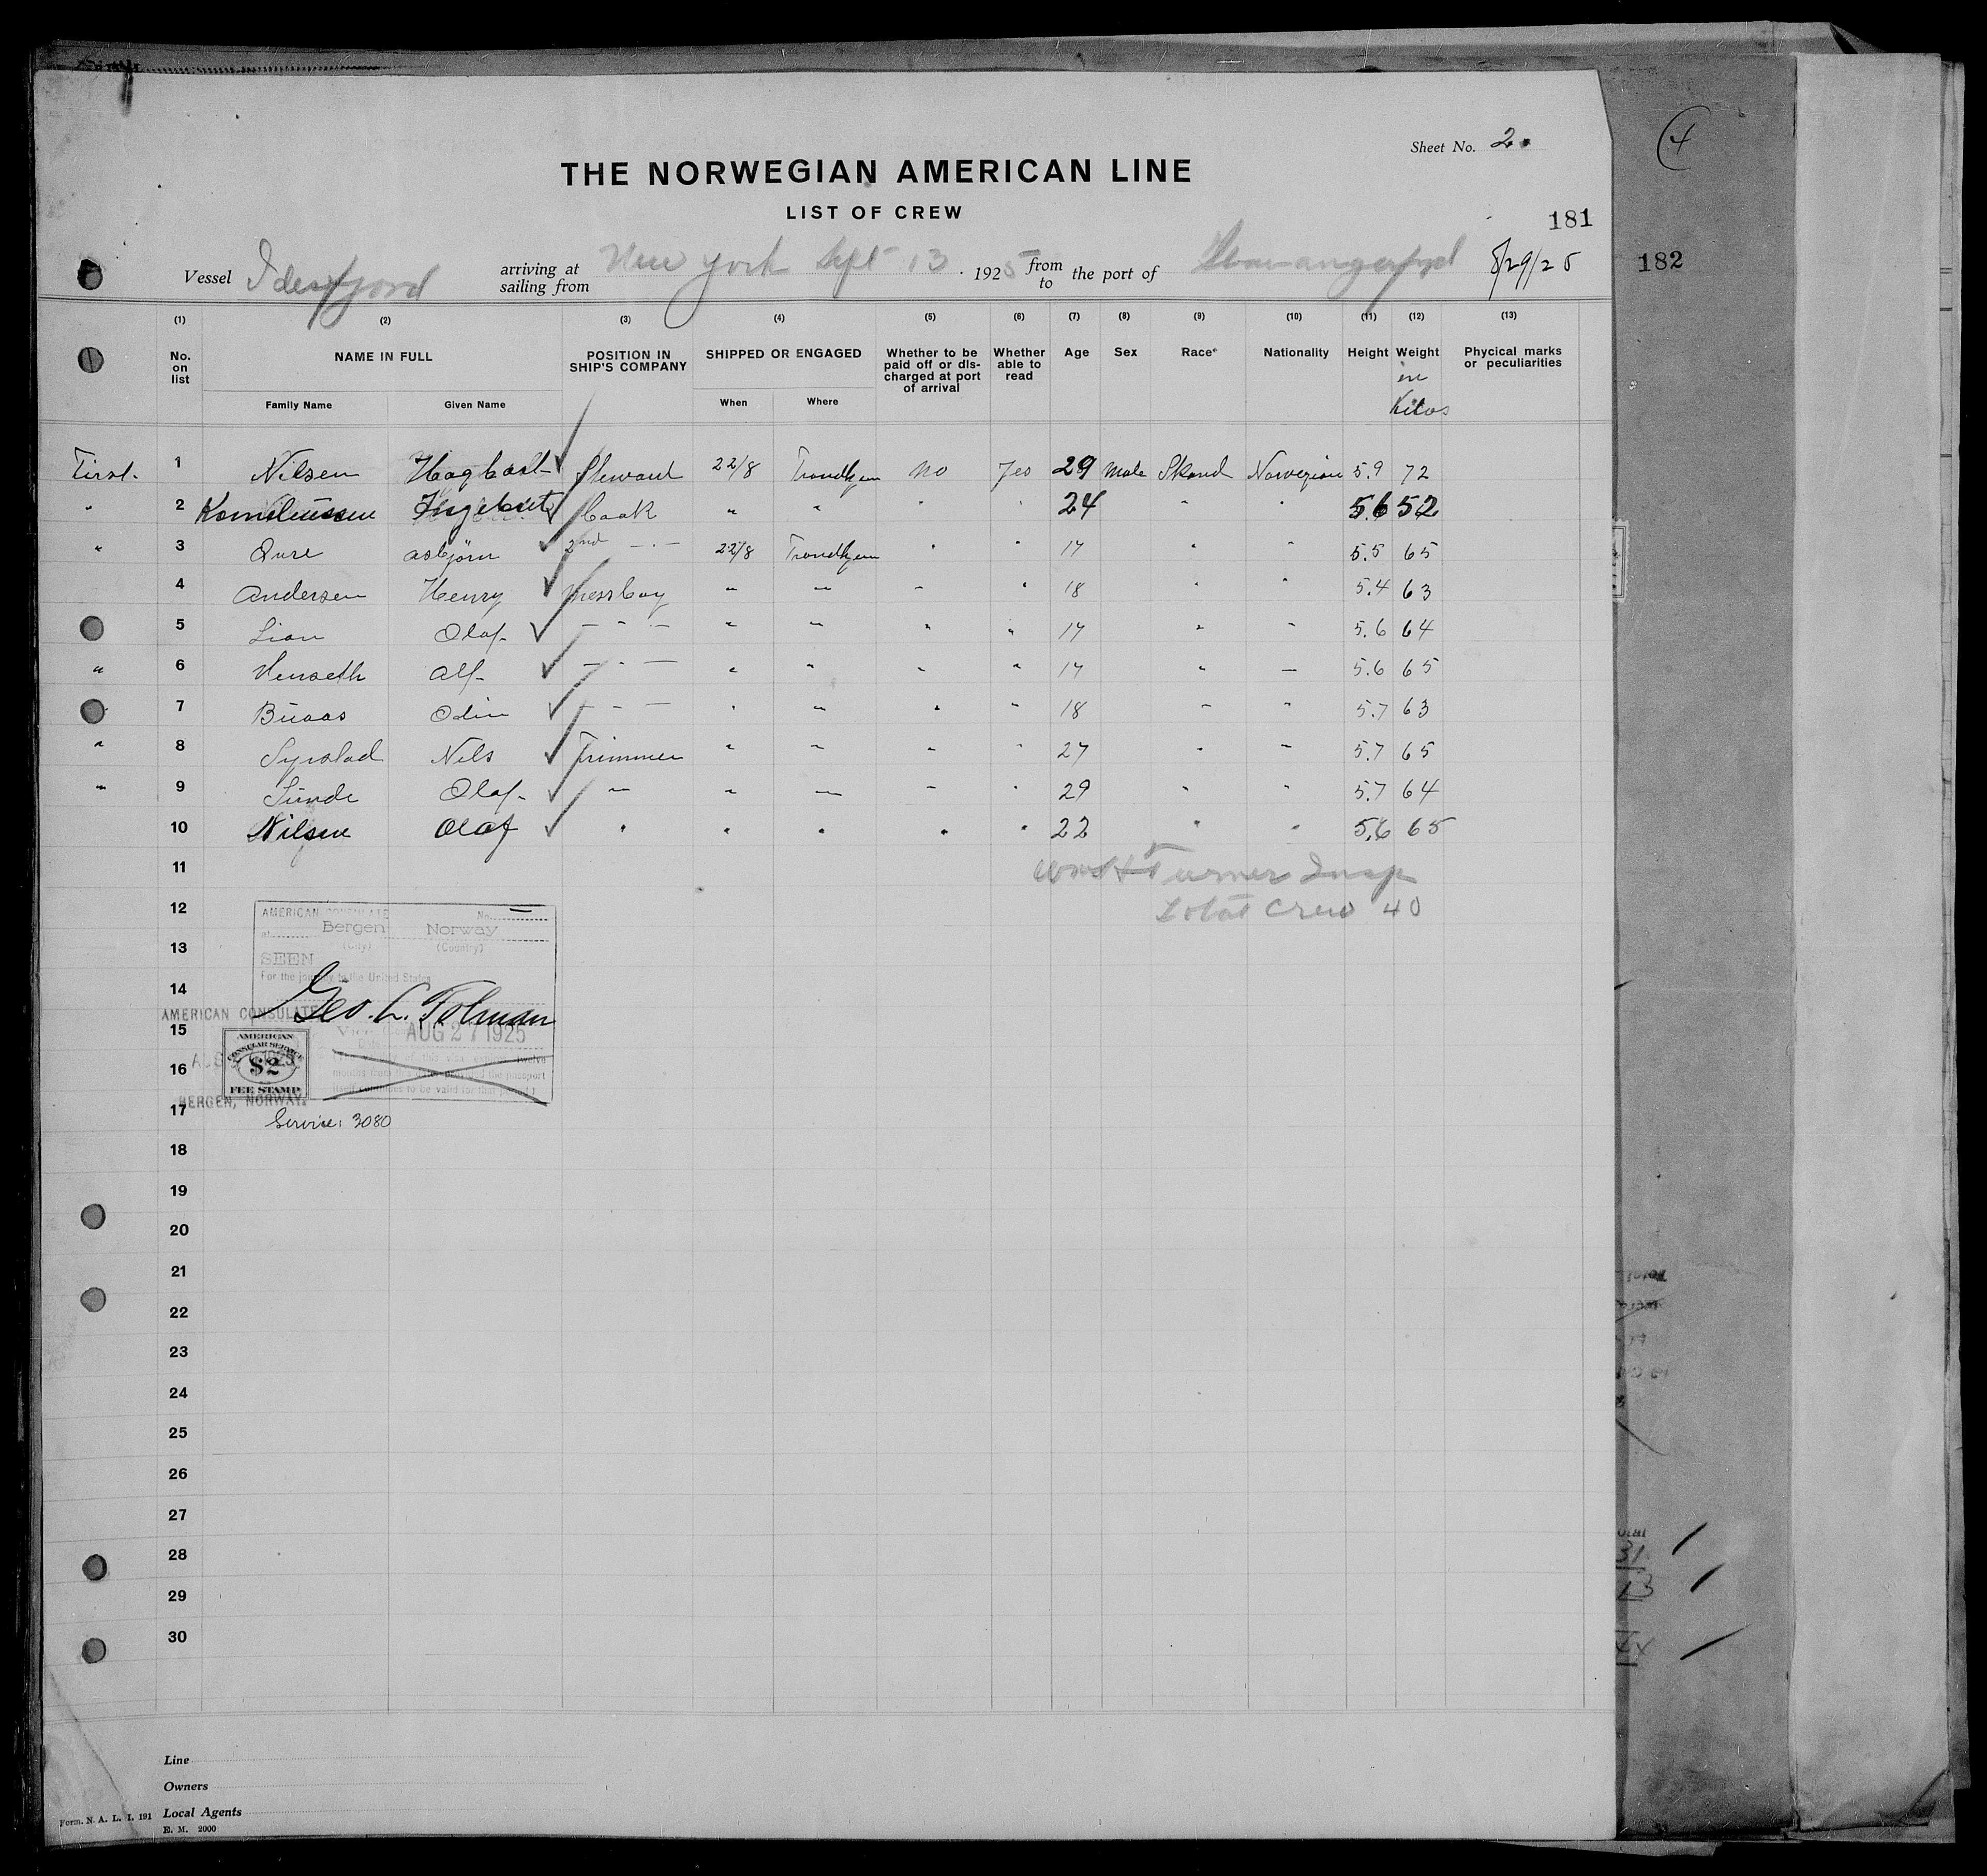 Sheet No. 2.
THE NORWEGIAN AMERICAN LINE
LIST OF CREW
181
(4
182
Vessel Idefjord arriving at sailing from New York Sept 13 . 1925 from to the port of 8/29/25
(1) (2) (3) (4) (5) (6) (7) (8) (9) (10) (11) (12) (13)
No. on list NAME IN FULL POSITION IN SHIP'S COMPANY SHIPPED OR ENGAGED Whether to be paid off or dis- charged at port of arrival Whether able to read Age Sex Race* Nationality Height Weight in Kilos Phycical marks or peculiarities
Family Name Given Name When Where
First. 1 Nilsen Hagbart Steward 22/8 Trondhjem No Yes 29 Male Skand Norwegian 5.9 72
" 2 Korneliussen Ingebret Cook " " " " 24 " " 5.6 52
" 3 asbjörn 2nd - " - 22/8 Trondhjem " " 17 " " 5.5 65
4 Andersen Henry Messboy " " " " 18 " " 5.4 63
5 Lian Olaf - " - " " " " 17 " " 5.6 64
" 6 Alf - " - " " " " 17 " " 5.6 65
7 Buaas Odin - " - " " " " 18 " " 5.7 63
" 8 Syrstad Nils Trimmer " " " " 27 " " 5.7 65
" 9 Sunde Olaf " " " " " 29 " " 5.7 64
10 Nilsen Olaf " " " " " 22 " " 5.6 65
11 Wm H Turner Insp
12 Total Crew 40
AMERICAN CONSULATE No.
at Bergen Norway
(City) (Country)
13
SEEN
For the journey to the United States
14
Geo. C. Tolman
AMERICAN CONSULATE
15
Vice
AUG 27 1925
AMERICAN CONSULAR SERVICE
16
$2
FEE STAMP
BERGEN, NORWAY.
17
Service: 3080
18
19
20
21
22
23
24
25
26
27
28
29
30
31
13
Line
Owners
Local Agents
Form. N. A. L. I. 191
E. M. 2000